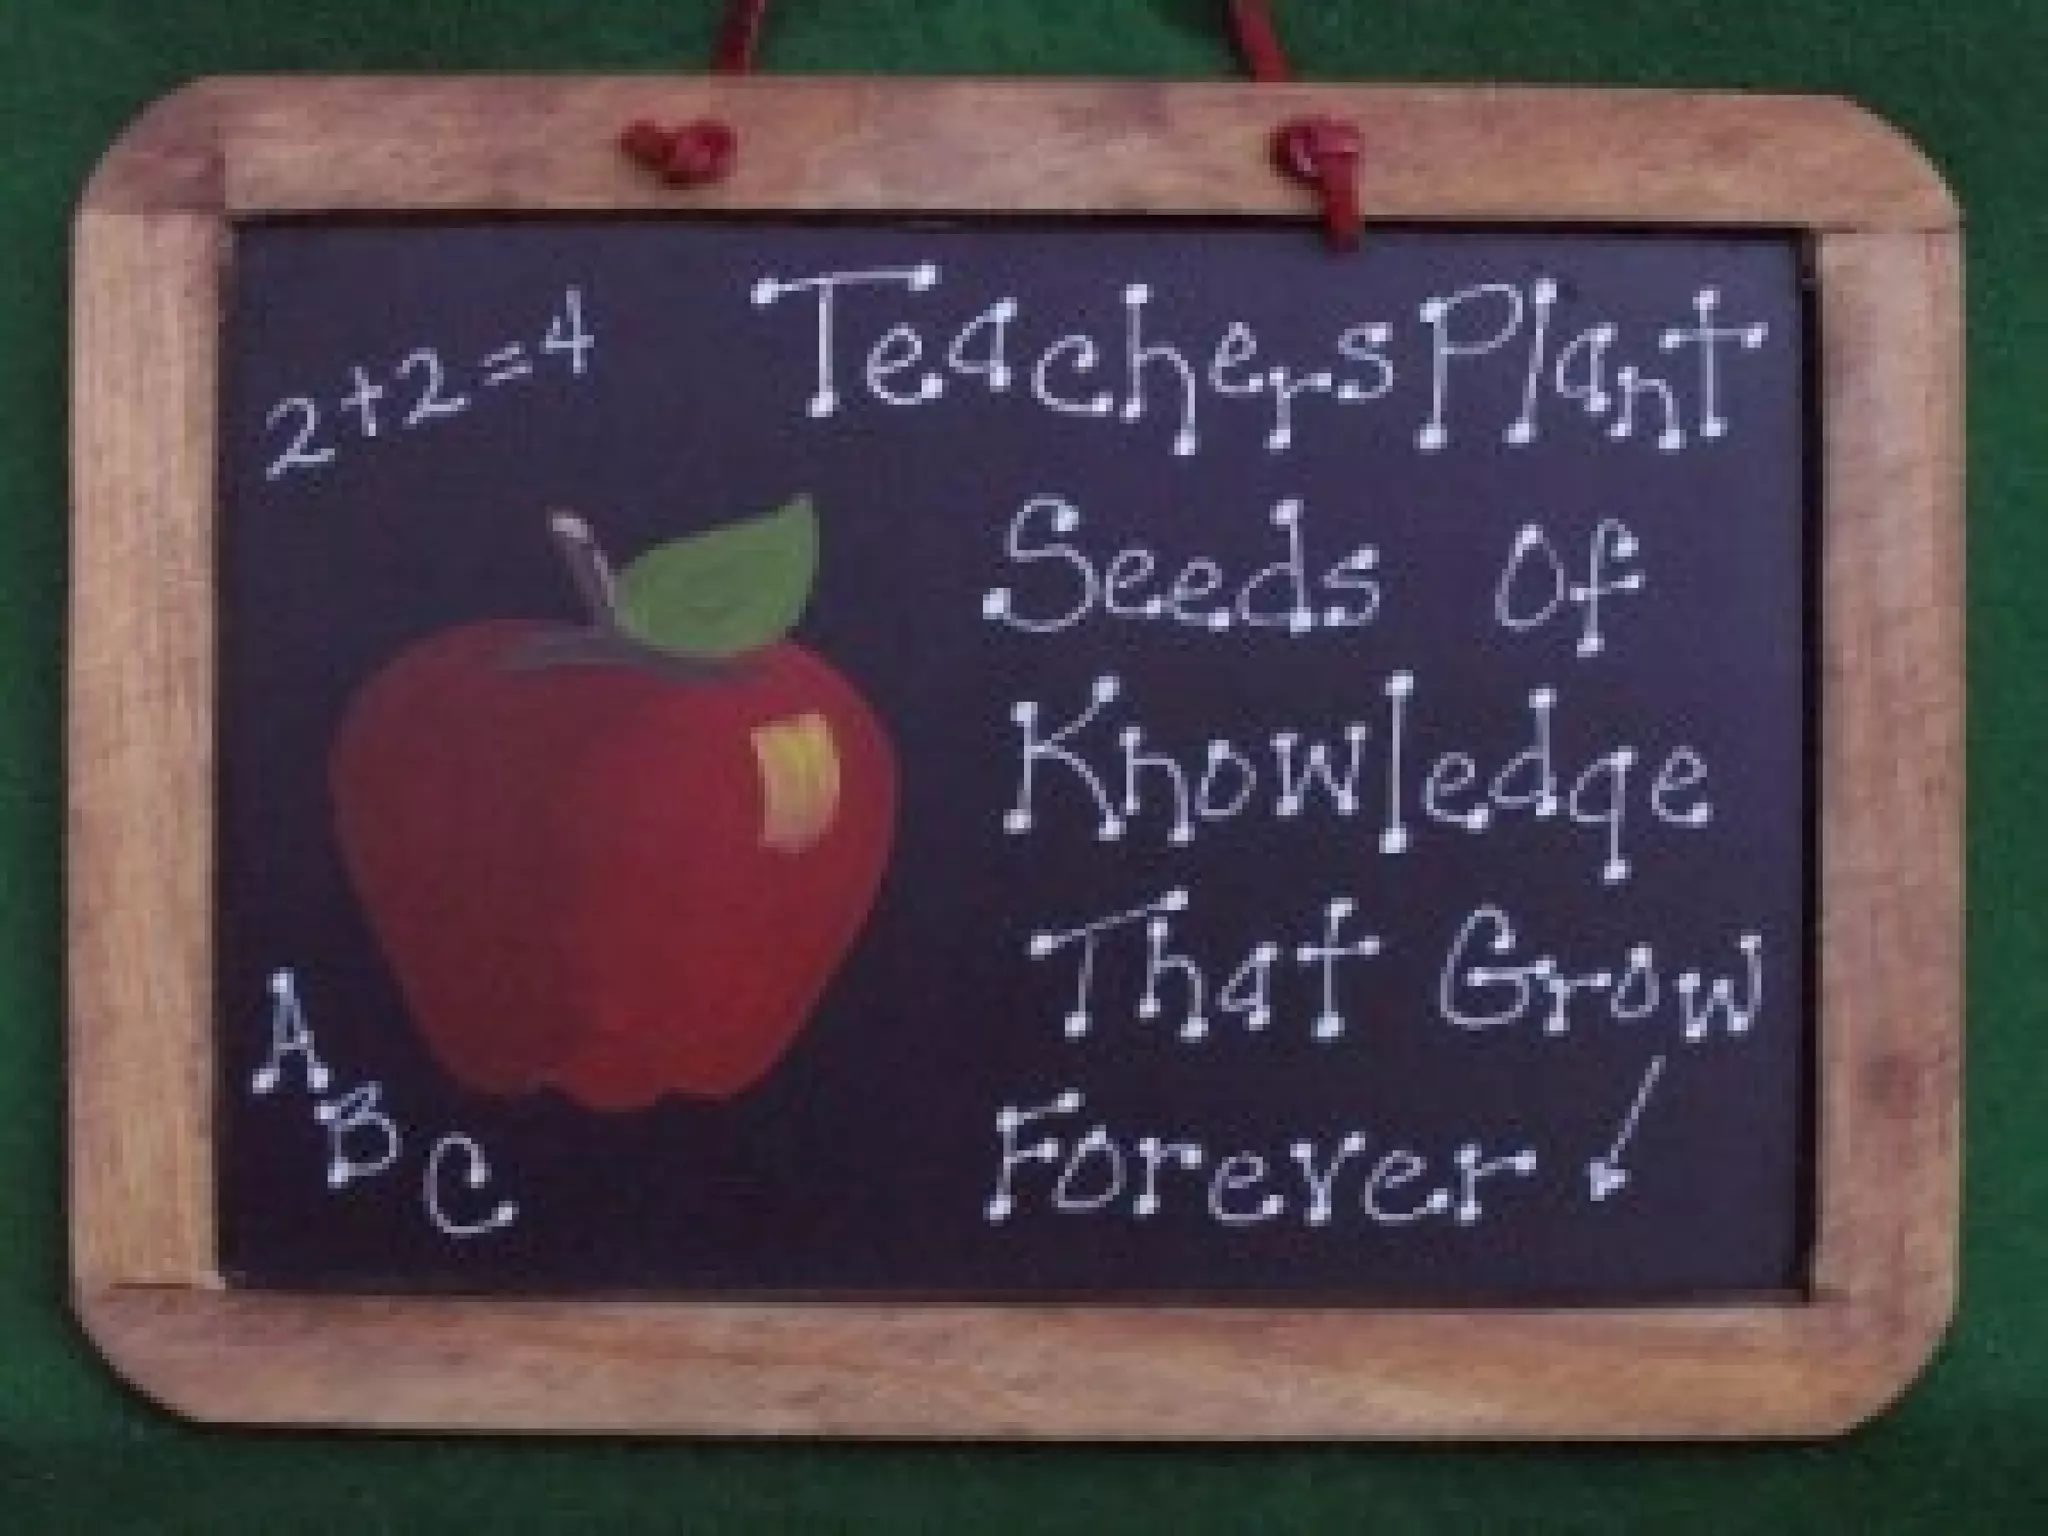 2+2=4
Teachers Plant
Seeds Of
Knowledge
That Grow
Forever
A
B
C